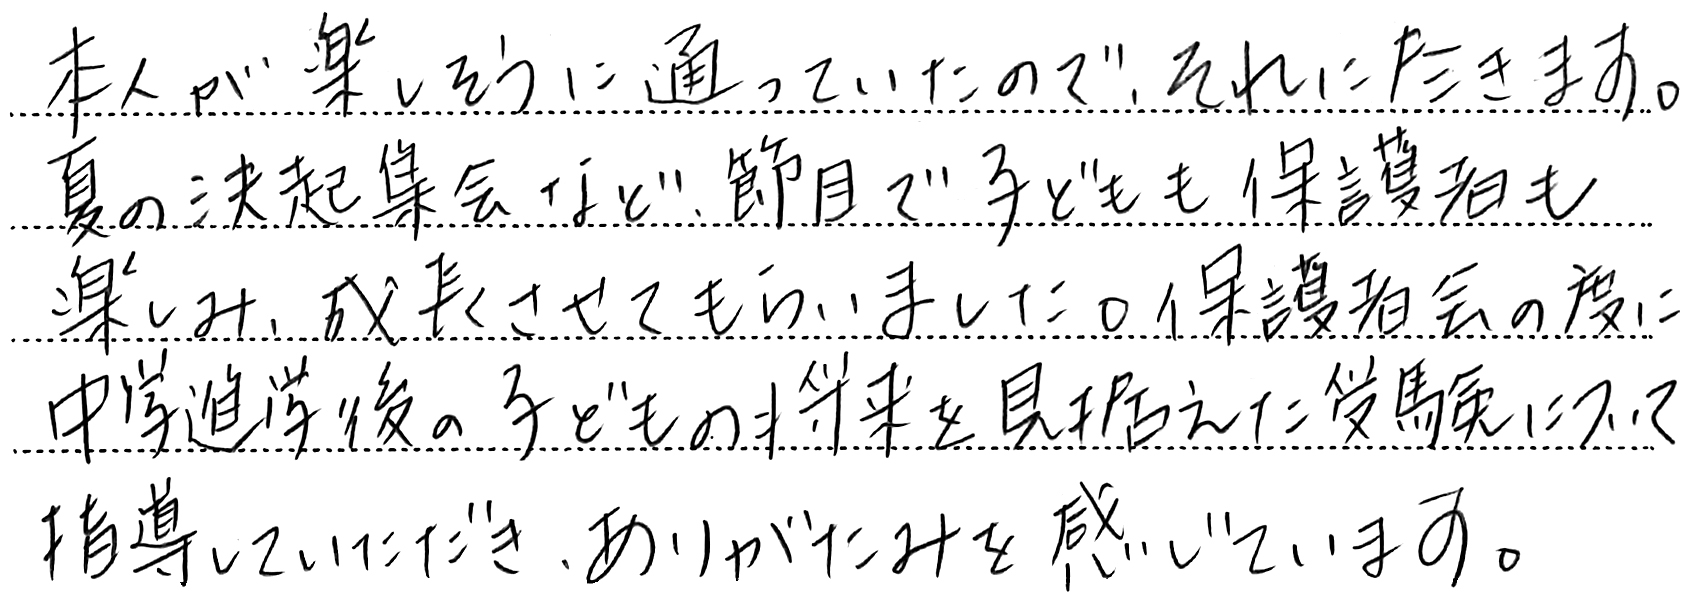 本人が楽しそうに通っていたので、それにたきます。
夏の決起集会など、節目で子どもも保護者も
楽しみ、成長させてもらいました。保護者会の度に
中学進学後の子どもの将来を見据えた受験について
指導していただき、ありがたみを感じています。